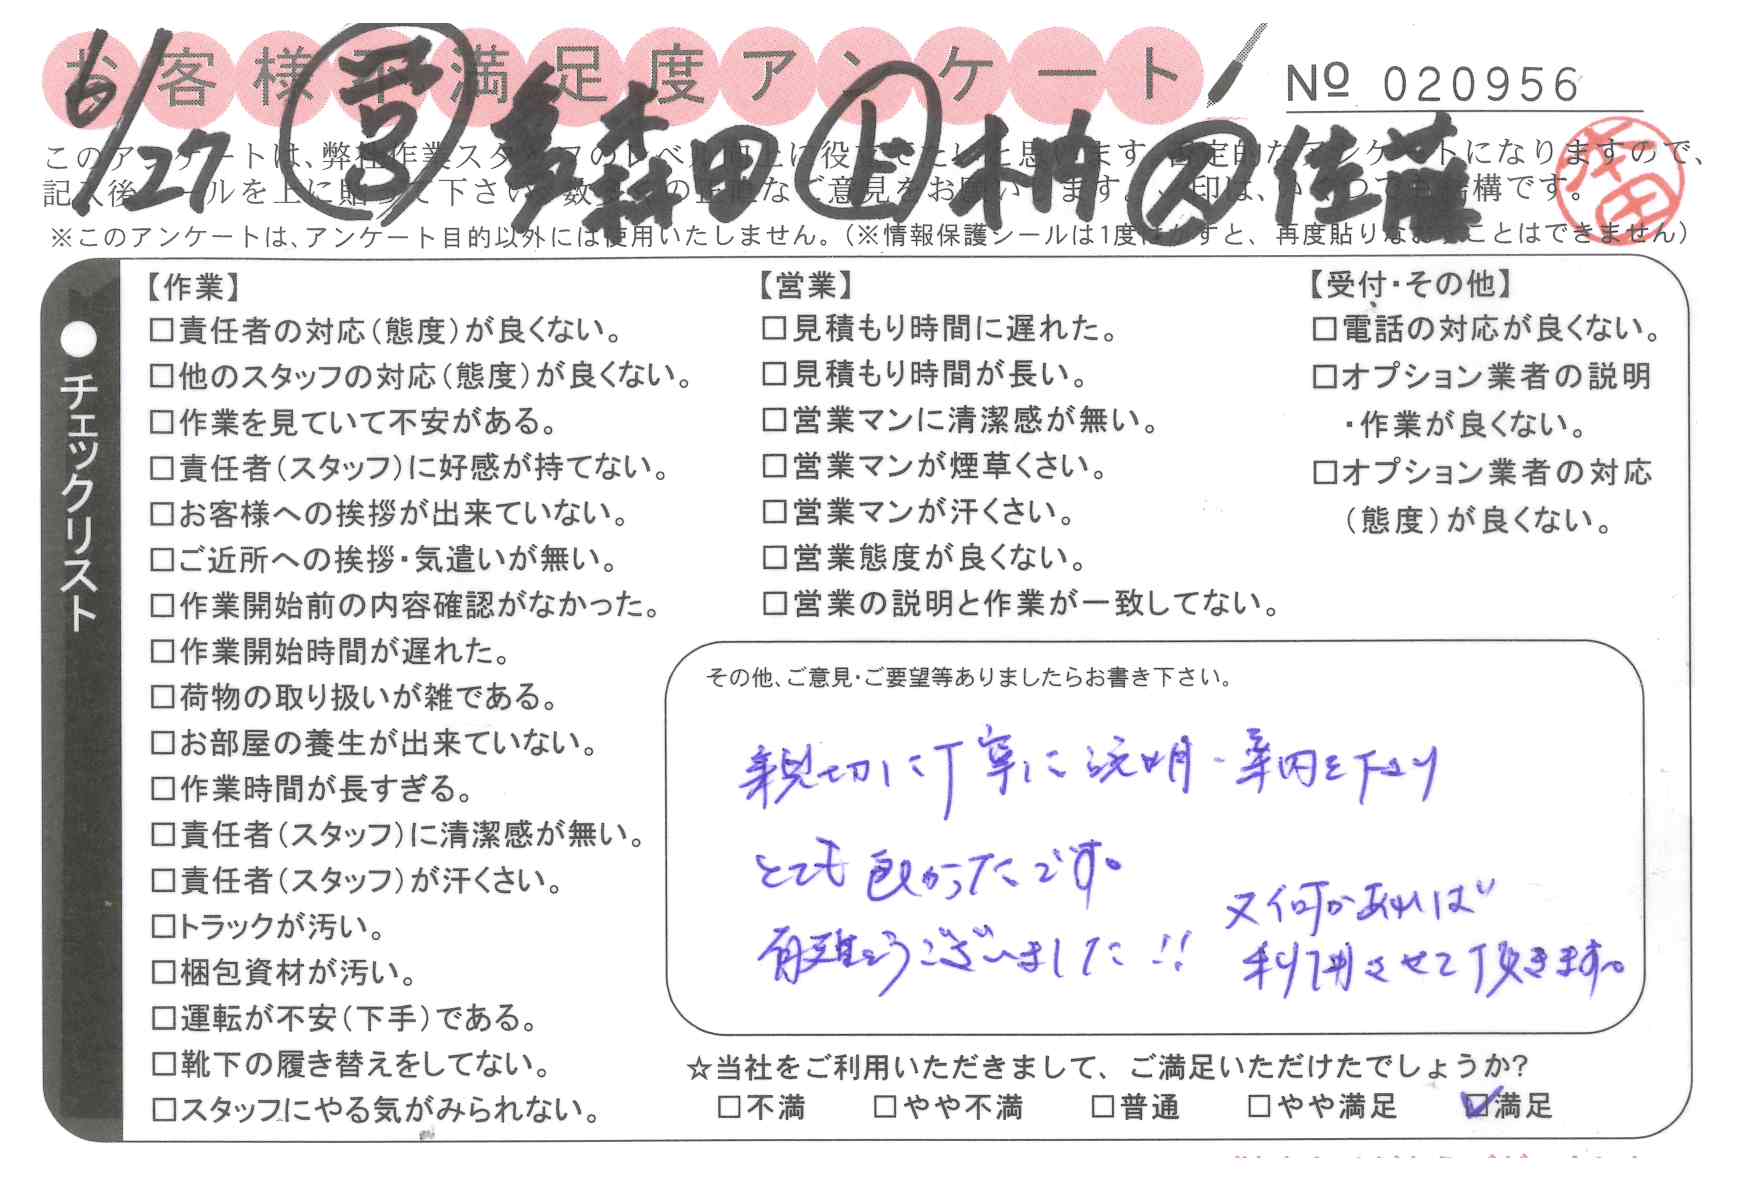 お客様不満足度アンケート
Nº 020956
6/27 営 多森田 上 村 ス 佐藤
このアンケートは、弊社作業スタッフのレベル向上に役立てたいと思います。否定的なアンケートになりますので、
記入後、シールを上に貼って下さい。数多くの正直なご意見をお願いします。レ印は、いくつでも結構です。
本田
※このアンケートは、アンケート目的以外には使用いたしません。(※情報保護シールは1度はがすと、再度貼りなおすことはできません)
●チェックリスト
【作業】
□責任者の対応(態度)が良くない。
□他のスタッフの対応(態度)が良くない。
□作業を見ていて不安がある。
□責任者(スタッフ)に好感が持てない。
□お客様への挨拶が出来ていない。
□ご近所への挨拶・気遣いが無い。
□作業開始前の内容確認がなかった。
□作業開始時間が遅れた。
□荷物の取り扱いが雑である。
□お部屋の養生が出来ていない。
□作業時間が長すぎる。
□責任者(スタッフ)に清潔感が無い。
□責任者(スタッフ)が汗くさい。
□トラックが汚い。
□梱包資材が汚い。
□運転が不安(下手)である。
□靴下の履き替えをしてない。
□スタッフにやる気がみられない。
【営業】
□見積もり時間に遅れた。
□見積もり時間が長い。
□営業マンに清潔感が無い。
□営業マンが煙草くさい。
□営業マンが汗くさい。
□営業態度が良くない。
□営業の説明と作業が一致してない。
【受付・その他】
□電話の対応が良くない。
□オプション業者の説明
・作業が良くない。
□オプション業者の対応
(態度)が良くない。
その他、ご意見・ご要望等ありましたらお書き下さい。
親切に丁寧に説明・案内を下さり
とても良かったです。
有難うございました!!
又何かあれば
利用させて頂きます。
☆当社をご利用いただきまして、ご満足いただけたでしょうか?
□不満 □やや不満 □普通 □やや満足 ☑満足